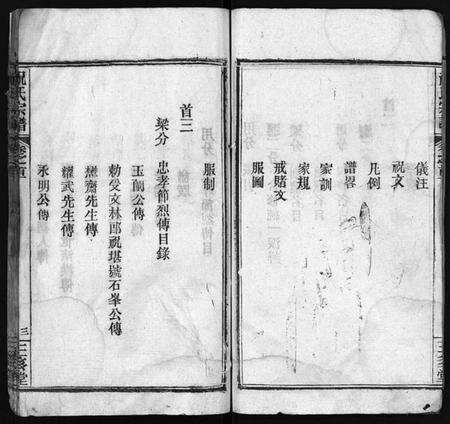 儀注
祝文
凡例
譜畧
家訓
家規
戒賭文
服圖
服制
首三
梁分
忠孝節烈傳目錄
玉閬公傳
勅受文林郎祝堪號石峯公傳
燃齋先生傳
耀武先生傳
永明公傳
祝氏宗譜
卷之首
三